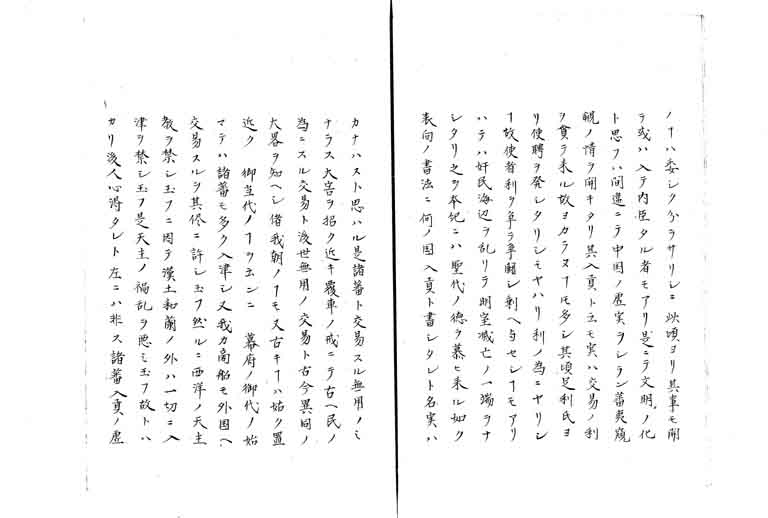 ノヿハ委シク分ラサリシニ此頃ヨリ其事モ開
ラ或ハ入テ内臣タル者モアリ是ニテ文明ノ化
ト思フハ間違ニテ中国ノ虚実ヲシラン蕃夷窺
覦ノ情ヲ開キタリ其入貢ト云モ実ハ交易ノ利
ヲ貪ラ来ル故ヨカラヌヿモ多シ其頃足利氏ヨ
リ使聘ヲ発シタリシモヤハリ利ノ為ニヤリシ
ヿ故使者利ヲ争ヲ争闘シ剰ヘ与セシヿモアリ
ハテハ奸民海辺ヲ乱リテ明室滅亡ノ一端ヲナ
シタリ之ヲ本紀ニハ聖代ノ徳ヲ慕ヒ来ル如ク
表向ノ書法ニ何ノ国入貢ト書シタレト名実ハ
カナハスト思ハル是諸蕃ト交易スル無用ノミ
ナラス大害ヲ招ク近キ覆車ノ戒ニテ古ヘ民ノ
為ニスル交易ト後世無用ノ交易ト古今異同ノ
大畧ヲ知ヘシ借我朝ノヿモ又古キヿハ姑ク置
近ク 御当代ノヿヲ云ンニ 幕府ノ御代ノ始
マテハ諸蕃モ多ク入津シ又我カ商舶モ外国ヘ
交易スルヲ其侭ニ許シ玉フ然ルニ西洋ノ天主
教ヲ禁シ玉フニ因テ漢土和蘭ノ外ハ一切ニ入
津ヲ禁シ玉フ是天主ノ禍乱ヲ悪ミ玉フ故トハ
カリ後人心得タレト左ニハ非ス諸蕃入貢ノ虚